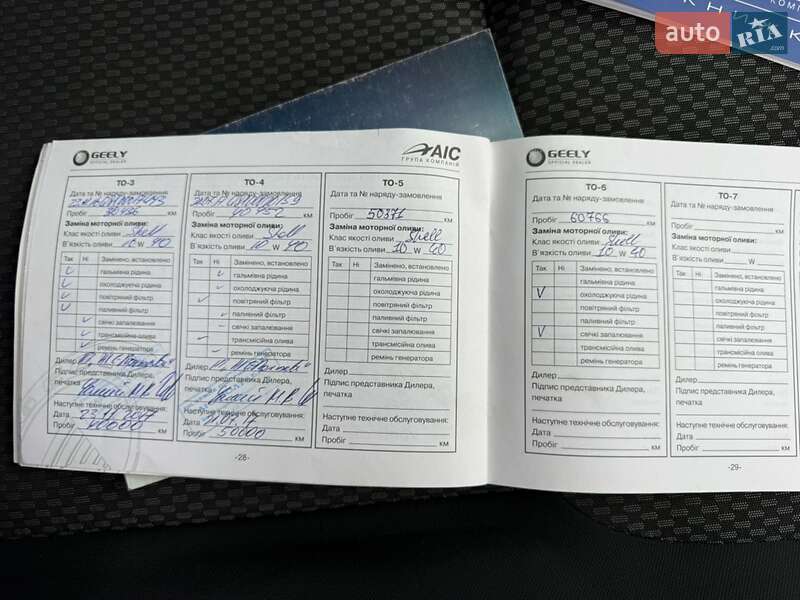 auto RIA.com
GEELY
OFFICIAL DEALER
AIC
ГРУПА КОМПАНІЙ
ТО-3
Дата та № наряду-замовлення
Пробіг км
Заміна моторної оливи:
Клас якості оливи Shell
В'язкість оливи 10 W 40
Так Ні Замінено, встановлено
гальмівна рідина
охолоджуюча рідина
повітряний фільтр
паливний фільтр
свічі запалювання
трансмісійна олива
ремінь генератора
Дилер
Підпис представника Дилера,
печатка
Наступне технічне обслуговування:
Дата
Пробіг 40000 км
ТО-4
Дата та № наряду-замовлення
Пробіг 40752 км
Заміна моторної оливи:
Клас якості оливи Shell
В'язкість оливи 10 W 40
Так Ні Замінено, встановлено
гальмівна рідина
охолоджуюча рідина
повітряний фільтр
паливний фільтр
свічки запалювання
трансмісійна олива
ремінь генератора
Дилер
Підпис представника Дилера,
печатка
Наступне технічне обслуговування:
Дата
Пробіг 50000 км
ТО-5
Дата та № наряду-замовлення
Пробіг 50371 км
Заміна моторної оливи:
Клас якості оливи Shell
В'язкість оливи 10 W 40
Так Ні Замінено, встановлено
гальмівна рідина
охолоджуюча рідина
повітряний фільтр
паливний фільтр
свічки запалювання
трансмісійна олива
ремінь генератора
Дилер
Підпис представника Дилера,
печатка
Наступне технічне обслуговування:
Дата
Пробіг км
-28-
GEELY
OFFICIAL DEALER
ТО-6
Дата та № наряду-замовлення
Пробіг 60766 км
Заміна моторної оливи:
Клас якості оливи Shell
В'язкість оливи 10 W 40
Так Ні Замінено, встановлено
гальмівна рідина
охолоджуюча рідина
повітряний фільтр
паливний фільтр
свічки запалювання
трансмісійна олива
ремінь генератора
Дилер
Підпис представника Дилера,
печатка
Наступне технічне обслуговування:
Дата
Пробіг км
ТО-7
Дата та № наряду-замовлення
Пробіг
Заміна моторної оливи:
Клас якості оливи
В'язкість оливи W
Так Ні Замінено, встановлено
гальмівна рідина
охолоджуюча рідина
повітряний фільтр
паливний фільтр
свічки запалювання
трансмісійна олива
ремінь генератора
Дилер
Підпис представника Дилера,
печатка
Наступне технічне обслуговування:
Дата
Пробіг
-29-